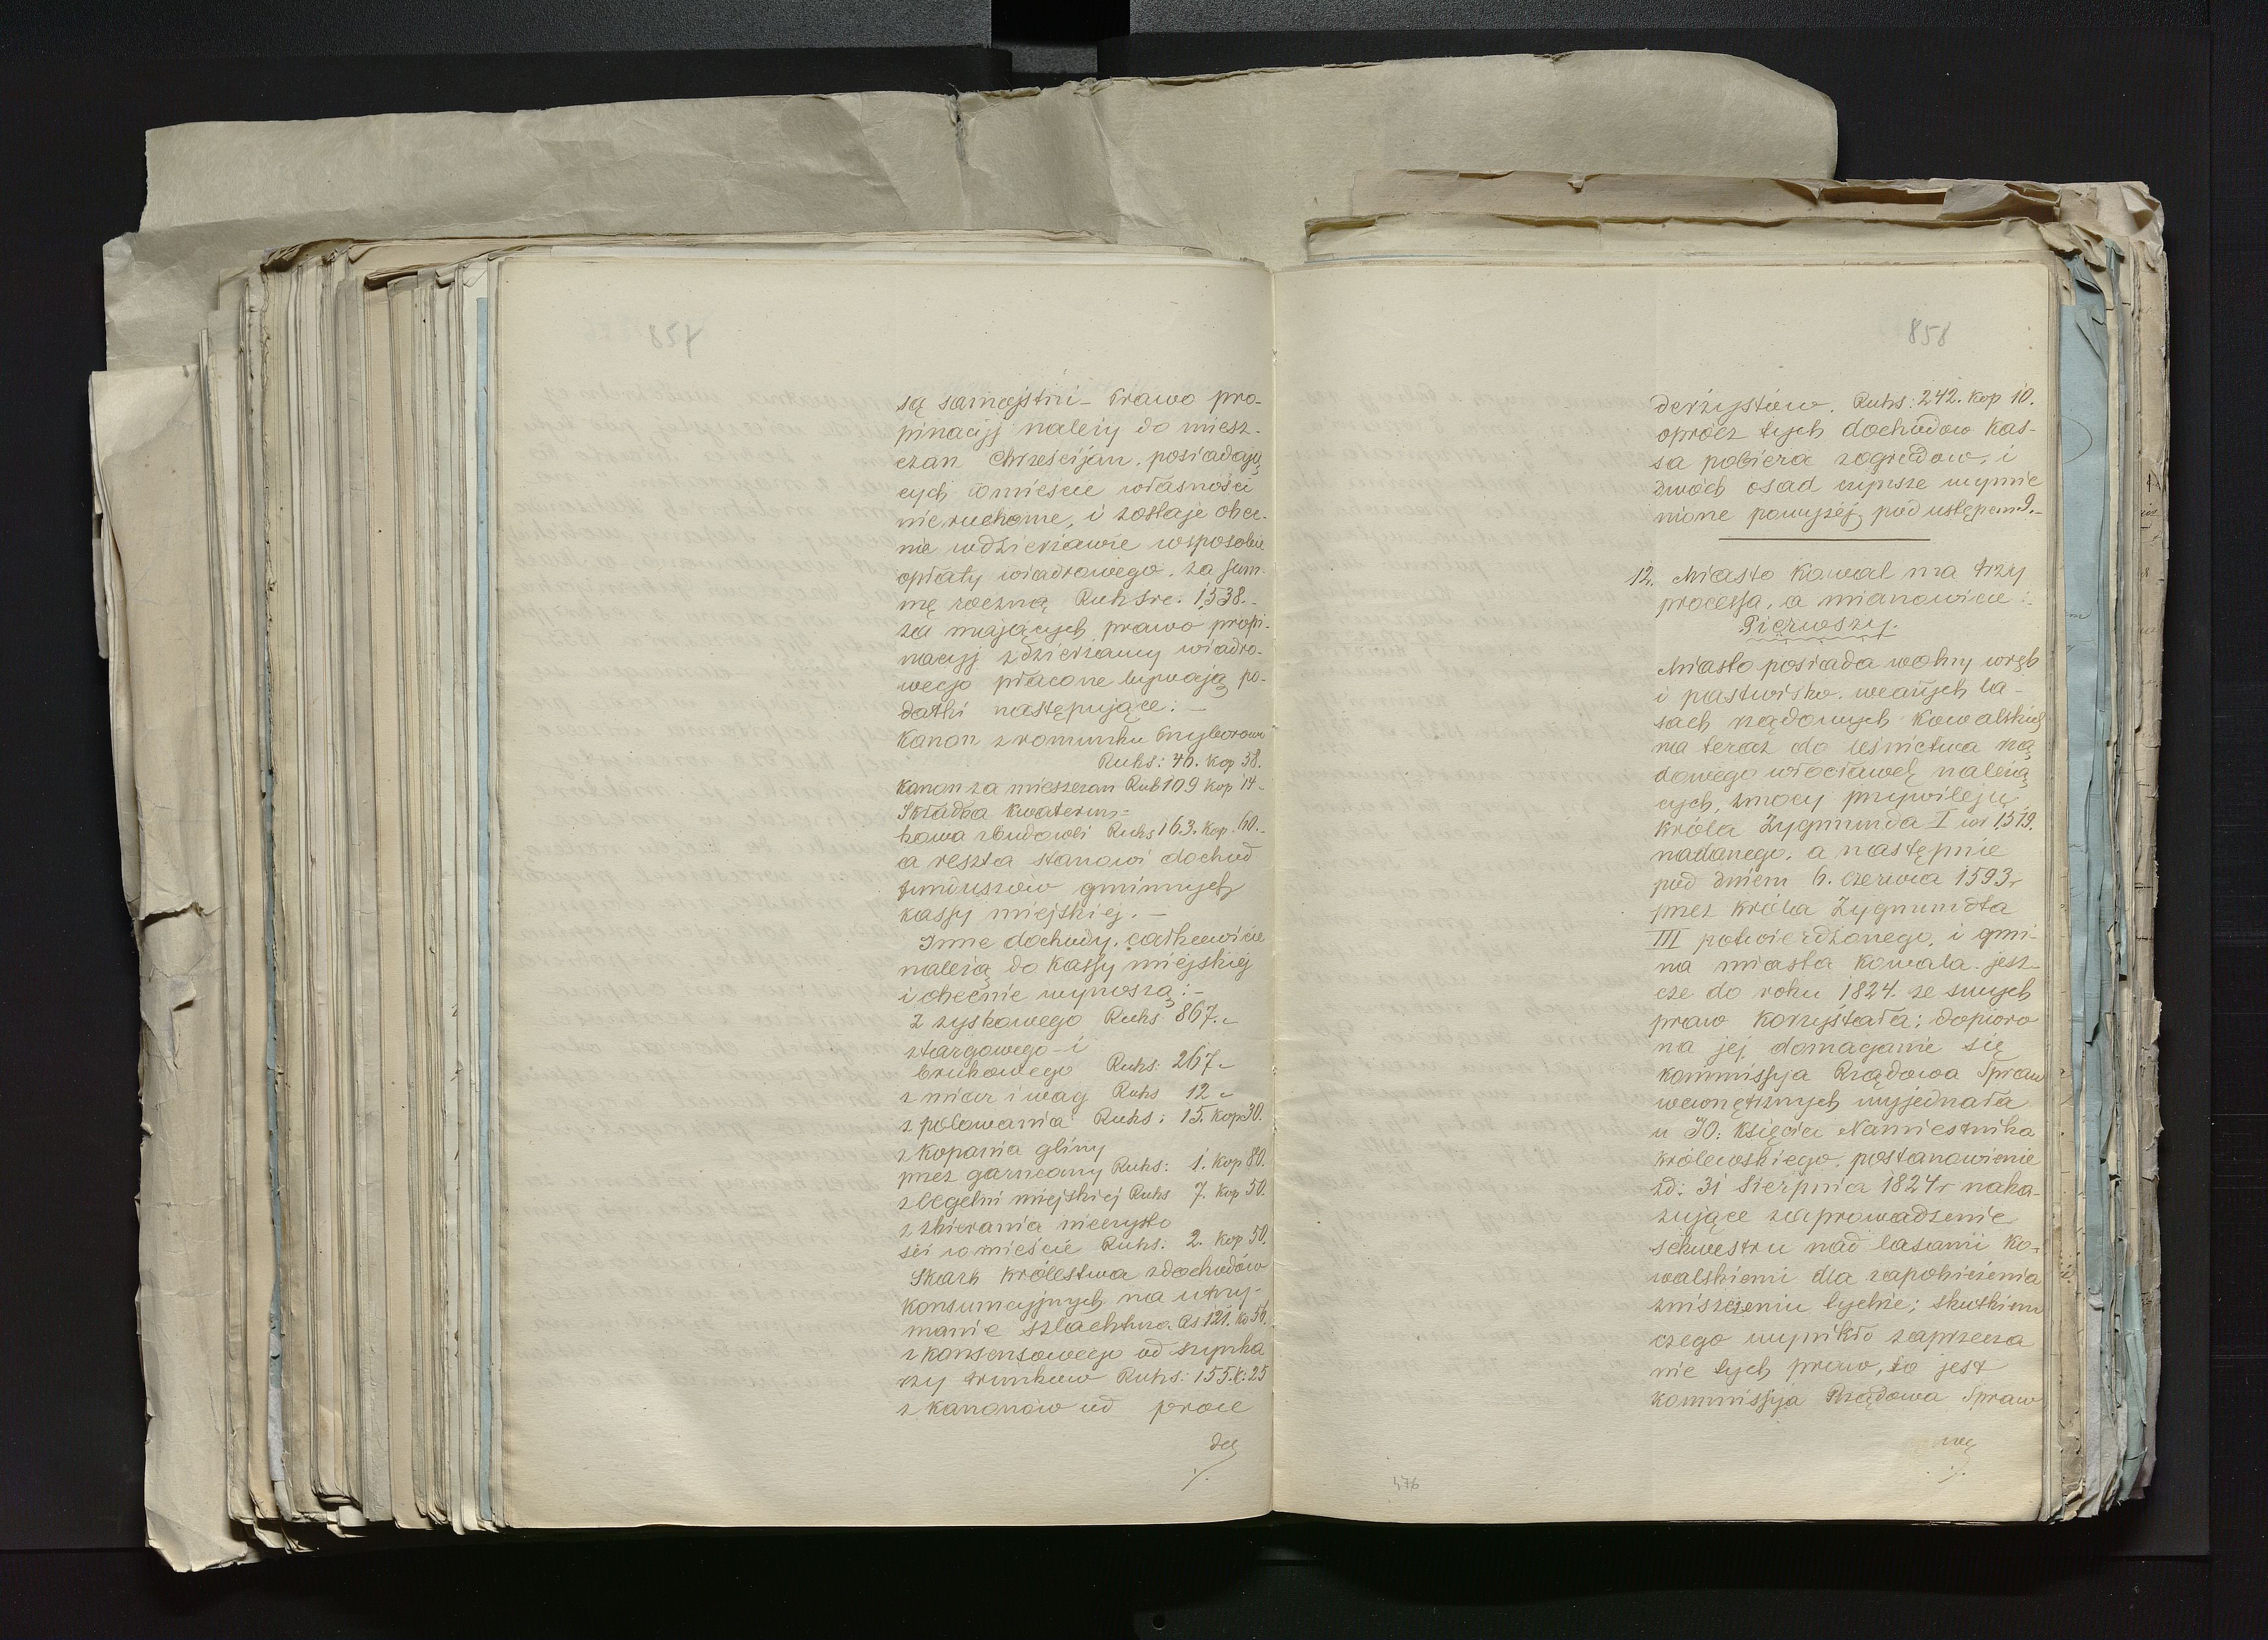 857
są samoistni – Prawo pro-
pinacyj należy do miesz-
czan Chrześcijan, posiadają
cych w mieście własności
nieruchome, i zostaje obec-
nie w dzierżawie w sposobie
opłaty wiadrowego, za sum-
mę roczną Rub Sre. 1538.-
za mających prawo propi-
nacyj z dzierżawy wiadro-
wego płacone bywają po-
datki następujące: –
Kanon z romunku Przyborowo
Rubs: 46. kop 38.
Kanon za mieszczan Rub 109 kop 14 -
Składka kwaterun-
kowa z budowli Rubs 163. kop. 60.-
a reszta stanowi dochod
funduszów gminnych
kassy miejskiej. –
Inne dochody, całkowicie
należą do kassy miejskiej
i obecnie wynoszą: –
Z zyskowego Rubs 867. "
z targowego – i
brukowego Rubs: 267 "
z miar i wag Rubs 12 "
z polowania Rubs: 15. kop 30.
z kopania gliny
przez garncarzy Rubs: 1. kop 80.
z cegelni miejskiej Rubs 7. kop 50.
z zbierania nieczysto
ści w mieście Rubs: 2. kop 50.
Skarb królestwa z dochodów
konsumcyjnych na utrzy-
manie szlachtuz. Rs 121. ko 56.
z konsensowego od szynka
rzy trunkow Rubs: 155. k: 25
z kanonów od proce
de
·/.
858
derzystów. Rubs: 242. kop 10.
oprócz tych dochodow kas-
sa pobiera z ogrodow, i
dwóch osad czynsze wymie
nione powyżej, pod ustępem 9.-
12. Miasto Kowal ma trzy
processa, a mianowicie:
Pierwszy.
Miasto posiada wolny wręb
i pastwisko, w całych la-
sach rządowych Kowalskich
na teraz do leśnictwa rzą
dowego Włocławek należą
cych, z mocy przywileju
króla Zygmunda I w r 1519.
nadanego, a następnie
pod dniem 6. czerwca 1593 r
przez króla Zygmundta
III potwierdzonego, i gmi-
na miasta Kowala jesz-
cze do roku 1824. ze swych
praw korzystała; dopioro
na jej domaganie się
kommissya Rządowa Spraw
wewnętrznych wyjednała
u JO: Księcia Namiestnika
królewskiego, postanowienie
z d: 31 Sierpnia 1824 r naka-
zujące zaprowadzenie
sekwestru nad lasami Ko-
walskiemi dla zapobieżenia
zniszczeniu tychże; skutkiem
czego wynikło zaprzecza
nie tych praw, to jest
kommissya Rządowa Spraw
we
·/.
476